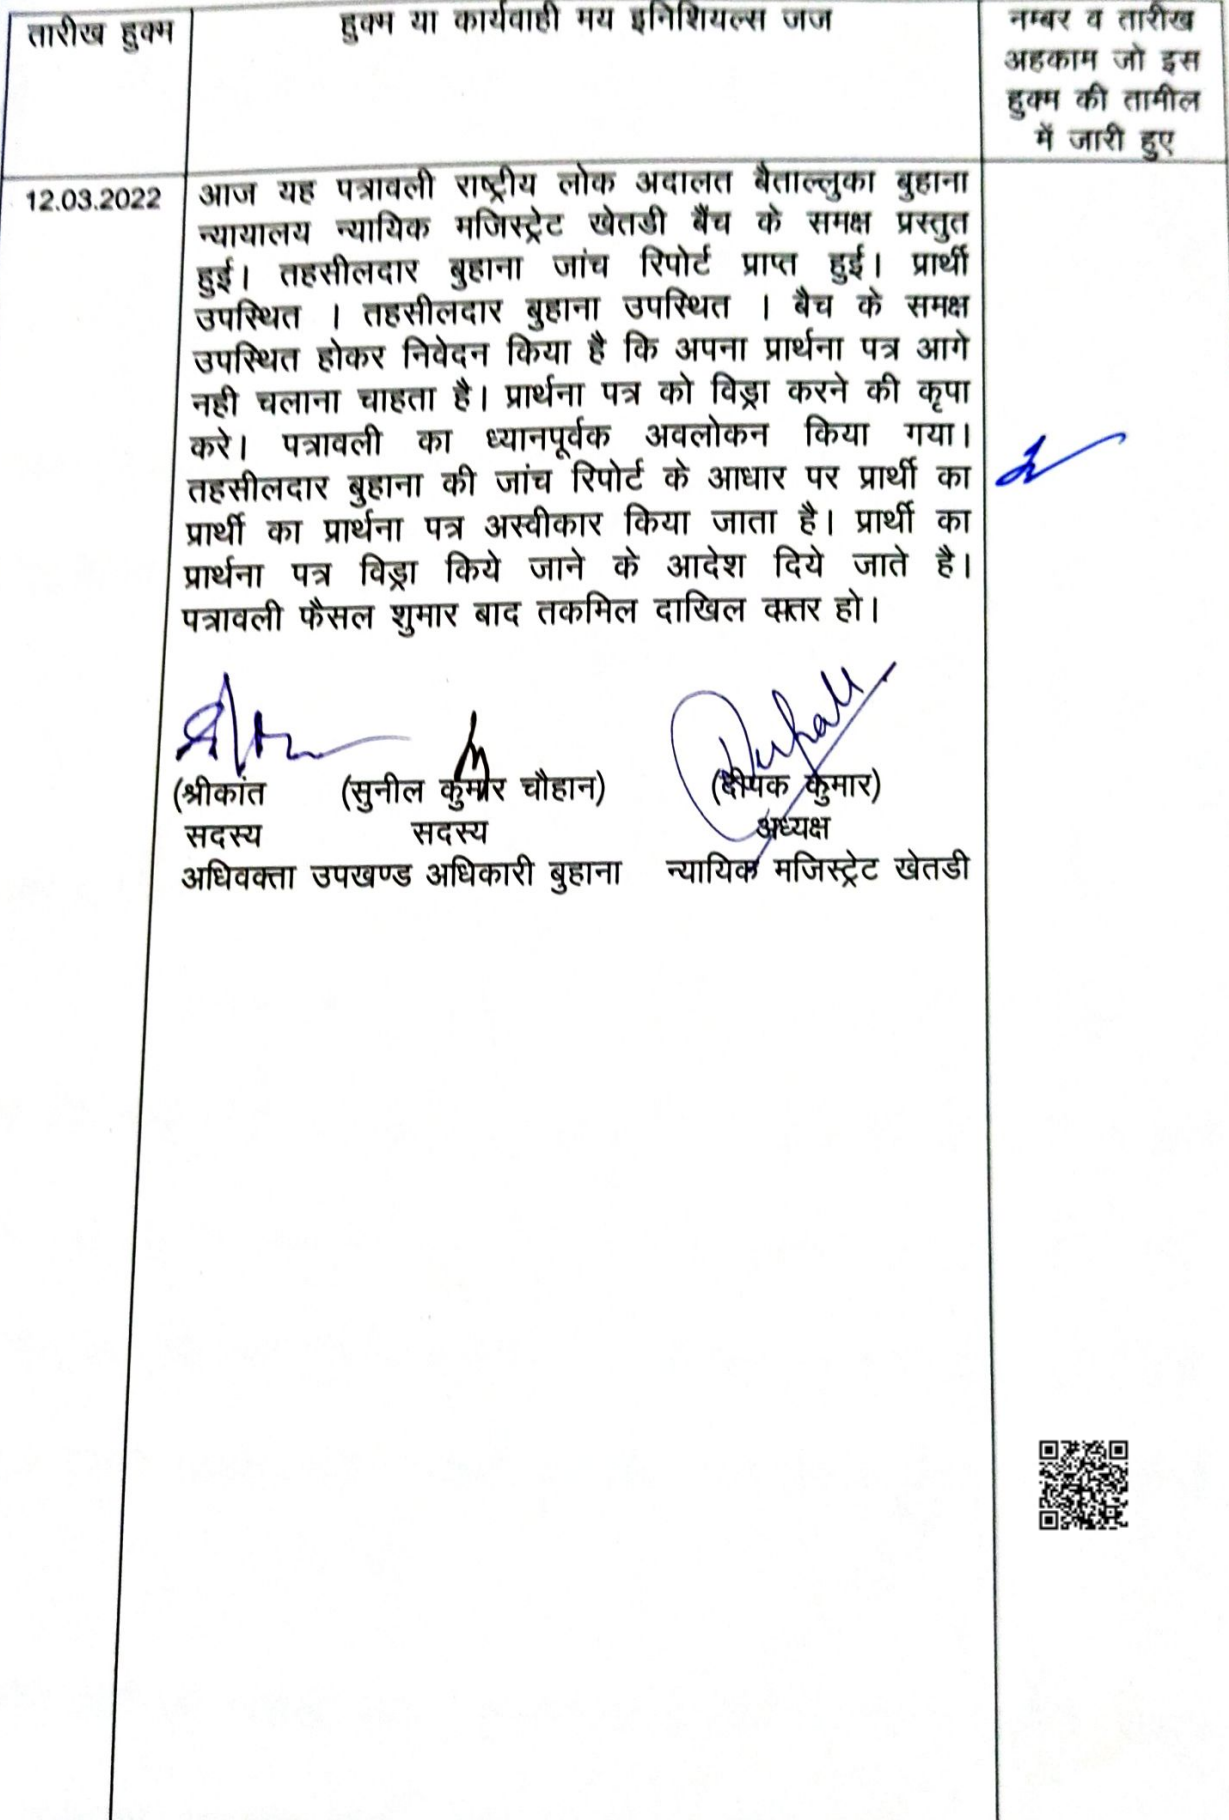 तारीख हुक्म
हुक्म या कार्यवाही मय इनिशियल्स जज
नम्बर व तारीख
अहकाम जो इस
हुक्म की तामील
में जारी हुए
12.03.2022
आज यह पत्रावली राष्ट्रीय लोक अदालत बैताल्लुका बुहाना
न्यायालय न्यायिक मजिस्ट्रेट खेतडी बैंच के समक्ष प्रस्तुत
हुई। तहसीलदार बुहाना जांच रिपोर्ट प्राप्त हुई। प्रार्थी
उपस्थित । तहसीलदार बुहाना उपस्थित । बैच के समक्ष
उपस्थित होकर निवेदन किया है कि अपना प्रार्थना पत्र आगे
नही चलाना चाहता है। प्रार्थना पत्र को विड्रा करने की कृपा
करे। पत्रावली का ध्यानपूर्वक अवलोकन किया गया।
तहसीलदार बुहाना की जांच रिपोर्ट के आधार पर प्रार्थी का
प्रार्थी का प्रार्थना पत्र अस्वीकार किया जाता है। प्रार्थी का
प्रार्थना पत्र विड्रा किये जाने के आदेश दिये जाते है।
पत्रावली फैसल शुमार बाद तकमिल दाखिल दफ्तर हो।
(श्रीकांत (सुनील कुमार चौहान) (दीपक कुमार)
सदस्य सदस्य अध्यक्ष
अधिवक्ता उपखण्ड अधिकारी बुहाना न्यायिक मजिस्ट्रेट खेतडी